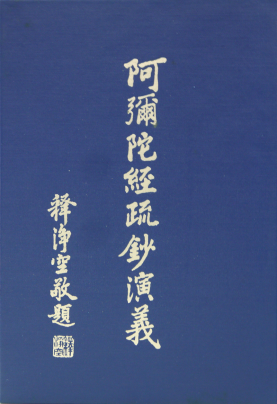 阿彌陀經疏鈔演義
釋淨空敬題